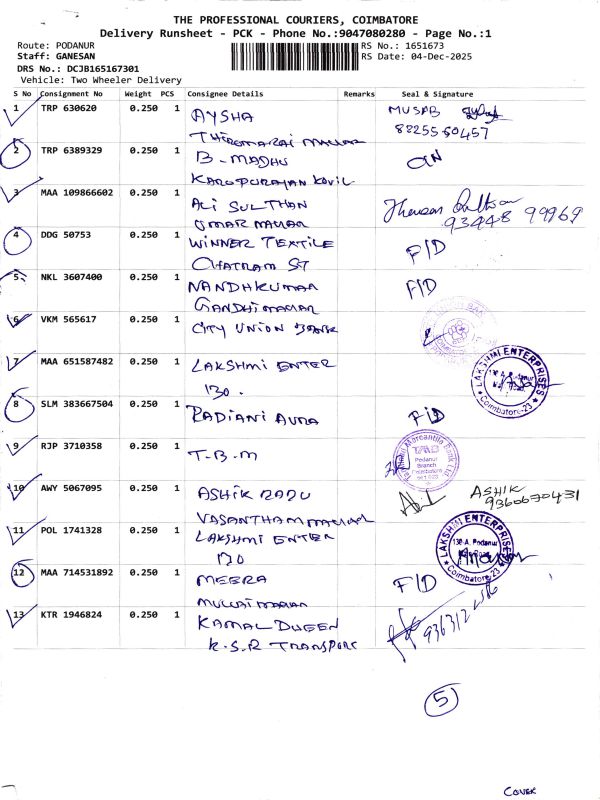 THE PROFESSIONAL COURIERS, COIMBATORE
Delivery Runsheet - PCK - Phone No.:9047080280 - Page No.:1
Route: PODANUR
RS No.: 1651673
Staff: GANESAN
RS Date: 04-Dec-2025
DRS No.: DCJB165167301
Vehicle: Two Wheeler Delivery
S No Consignment No Weight PCS Consignee Details Remarks Seal & Signature
1 TRP 630620 0.250 1 AYSHA MUSAB
THIROMARAI NAGAR 8825560457
2 TRP 6389329 0.250 1 B-MADHU
KAROPURAYAN KOVIL
3 MAA 109866602 0.250 1 ALI SULTHAN
OMAR NAGAR 93448 99969
4 DDG 50753 0.250 1 WINNER TEXTILE F/D
CHATRAM ST
5 NKL 3607400 0.250 1 NANDHKUMAR F/D
GANDHI NAGAR
6 VKM 565617 0.250 1 CITY UNION BANK
7 MAA 651587482 0.250 1 LAKSHMI ENTER LAKSHMI ENTERPRISES
130. Coimbatore-23
8 SLM 383667504 0.250 1 RADIANI AURA F/D
9 RJP 3710358 0.250 1 T-B-M Mercantile Bank Ltd
TMB
Podanur
Branch
Coimbatore
10 AWY 5067095 0.250 1 ASHIK BABU ASHIK
VASANTHAM NAGAR 9360670431
11 POL 1741328 0.250 1 LAKSHMI ENTER LAKSHMI ENTERPRISES
130 130-A, Podanur
Coimbatore-23
12 MAA 714531892 0.250 1 MEERA F/D
MULLAI NAGAR
13 KTR 1946824 0.250 1 KAMAL DUGEN
K.S.R TRANSPORT
5
COVER